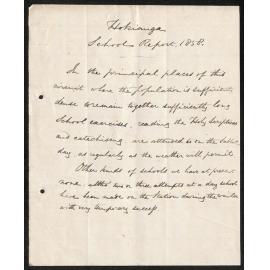 Hokianga
School Report, 1858.
In the principal places of this
circuit where the population is sufficiently
dense to remain together sufficiently long
School exercises, reading the Holy Scriptures
and catechising are attended to on the Sabbath
day as regularly as the weather will permit
Other kinds of schools we have at present
none, altho two or three attempts at a day school
have been made on the Station during the winter
with very temporary success.